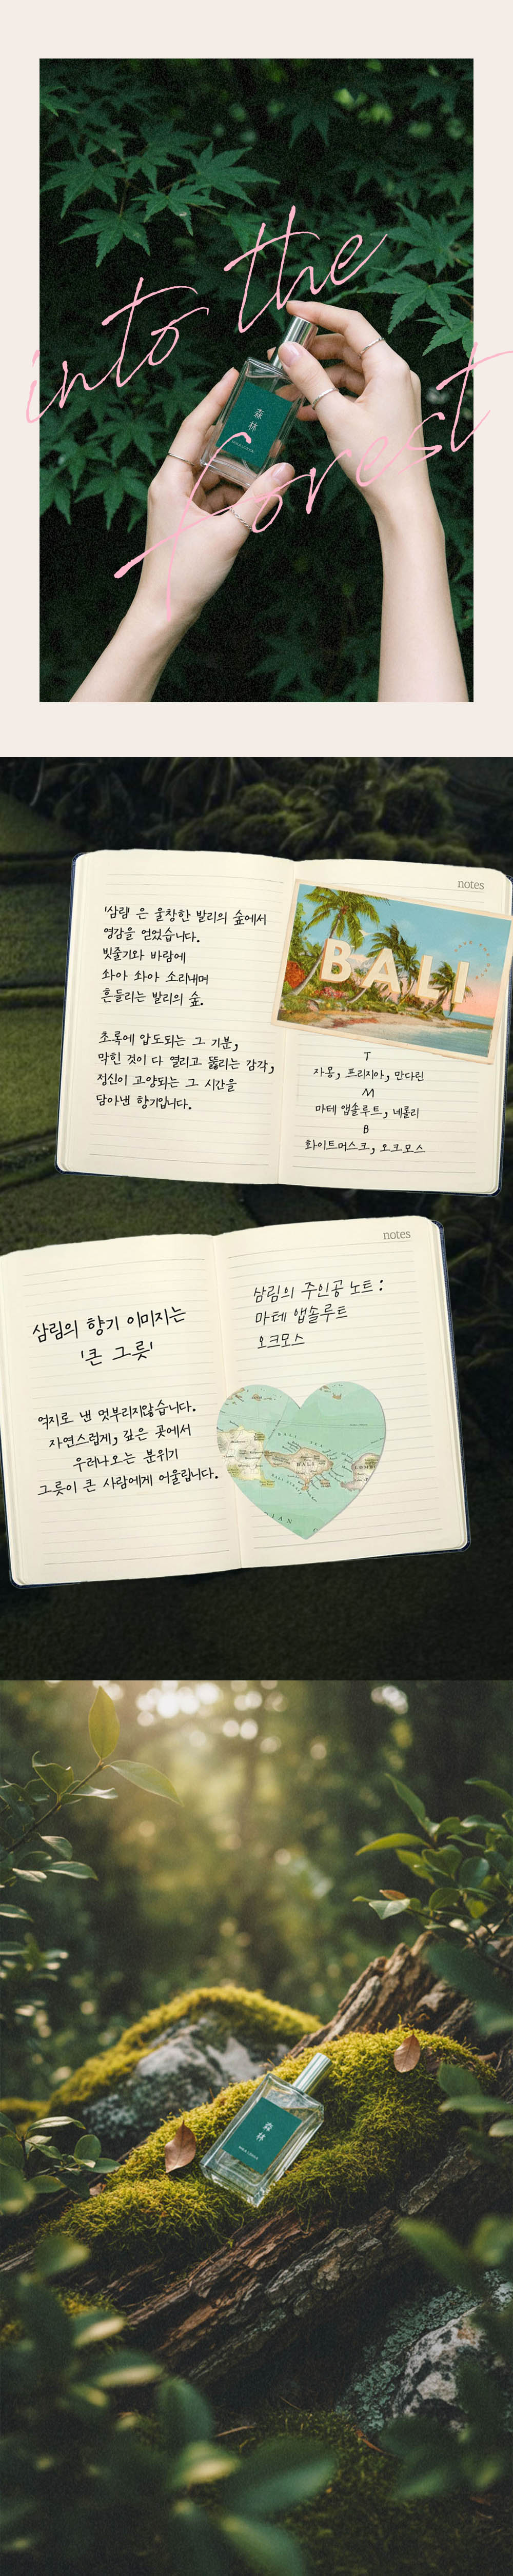 into the
森
林
forest
'삼림' 은 울창한 발리의 숲에서
영감을 얻었습니다.
빗줄기와 바람에
솨아 솨아 소리내며
흔들리는 발리의 숲.
초록에 압도되는 그 기분,
막힌 것이 다 열리고 뚫리는 감각,
정신이 고양되는 그 시간을
담아낸 향기입니다.
notes
BALI
T
자몽, 프리지아, 만다린
M
마테 앱솔루트, 네롤리
B
화이트머스크, 오크모스
삼림의 향기 이미지는
'큰 그릇'
억지로 낸 멋부리지않습니다.
자연스럽게, 깊은 곳에서
우러나오는 분위기
그릇이 큰 사람에게 어울립니다.
notes
삼림의 주인공 노트 :
마테 앱솔루트
오크모스
BALI
森
林